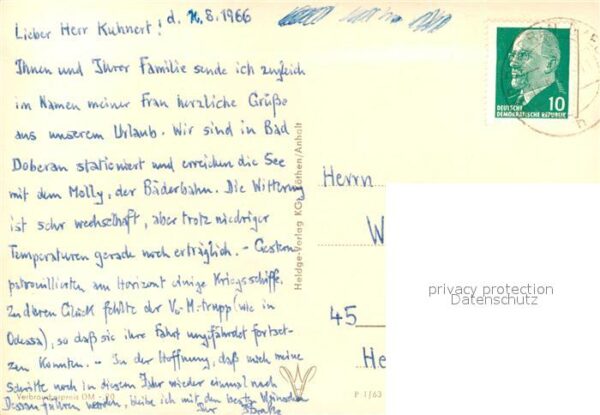 Lieber Herr Kuhnert! d. 8.1966
Ihnen und Ihrer Familie sende ich zugleich
im Namen meiner Frau herzliche Grüße
aus unserem Urlaub. Wir sind in Bad
Doberan stationiert und erreichen die See
mit dem Molly, der Bäderbahn. Die Witterung
ist sehr wechselhaft, aber trotz niedriger
Temperaturen gerade noch erträglich. - Gestern
patrouillierten am Horizont einige Kriegsschiffe.
Zu deren Glück fehlte der V.-M.-trupp (wie in
Odessa), so daß sie ihre Fahrt ungefährdet fortset-
zen konnten. - In der Hoffnung, daß mich meine
Schritte noch in diesem Jahr wieder einmal nach
Dessau führen werden, bleibe ich mit den besten Wünschen
Ihr
Verbraucherpreis DM -,20
Heldge-Verlag KG. Köthen/Anhalt
P 1/63
DEUTSCHE
DEMOKRATISCHE REPUBLIK
10
Herrn
W
45
He
privacy protection
Datenschutz